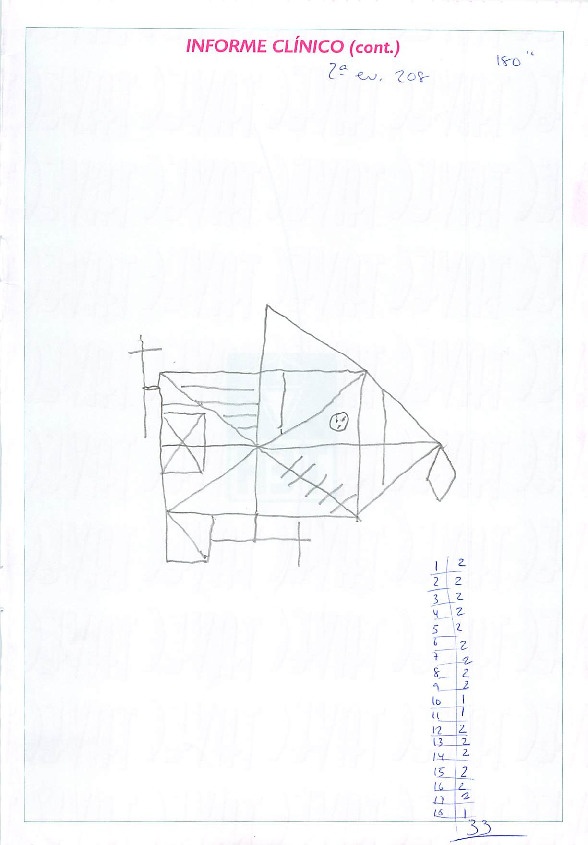 INFORME CLÍNICO (cont.)
180"
2ª ev. 208
1 2
2 2
3 2
4 2
5 2
6 2
7 2
8 2
9 2
10 1
11 1
12 2
13 2
14 2
15 2
16 2
17 2
18 1
33